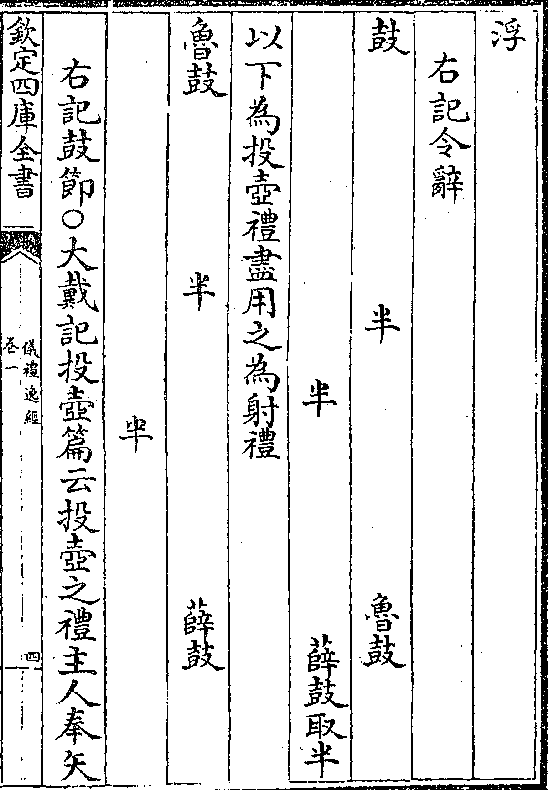 浮
右記令辭
鼓 半 魯鼓
半 薛鼓取半
以下為投壺禮盡用之為射禮
魯鼓 半 薛鼓
半
右記鼓節○大戴記投壺篇云投壺之禮主人奉矢
欽定四庫全書
儀禮逸經
卷一
四